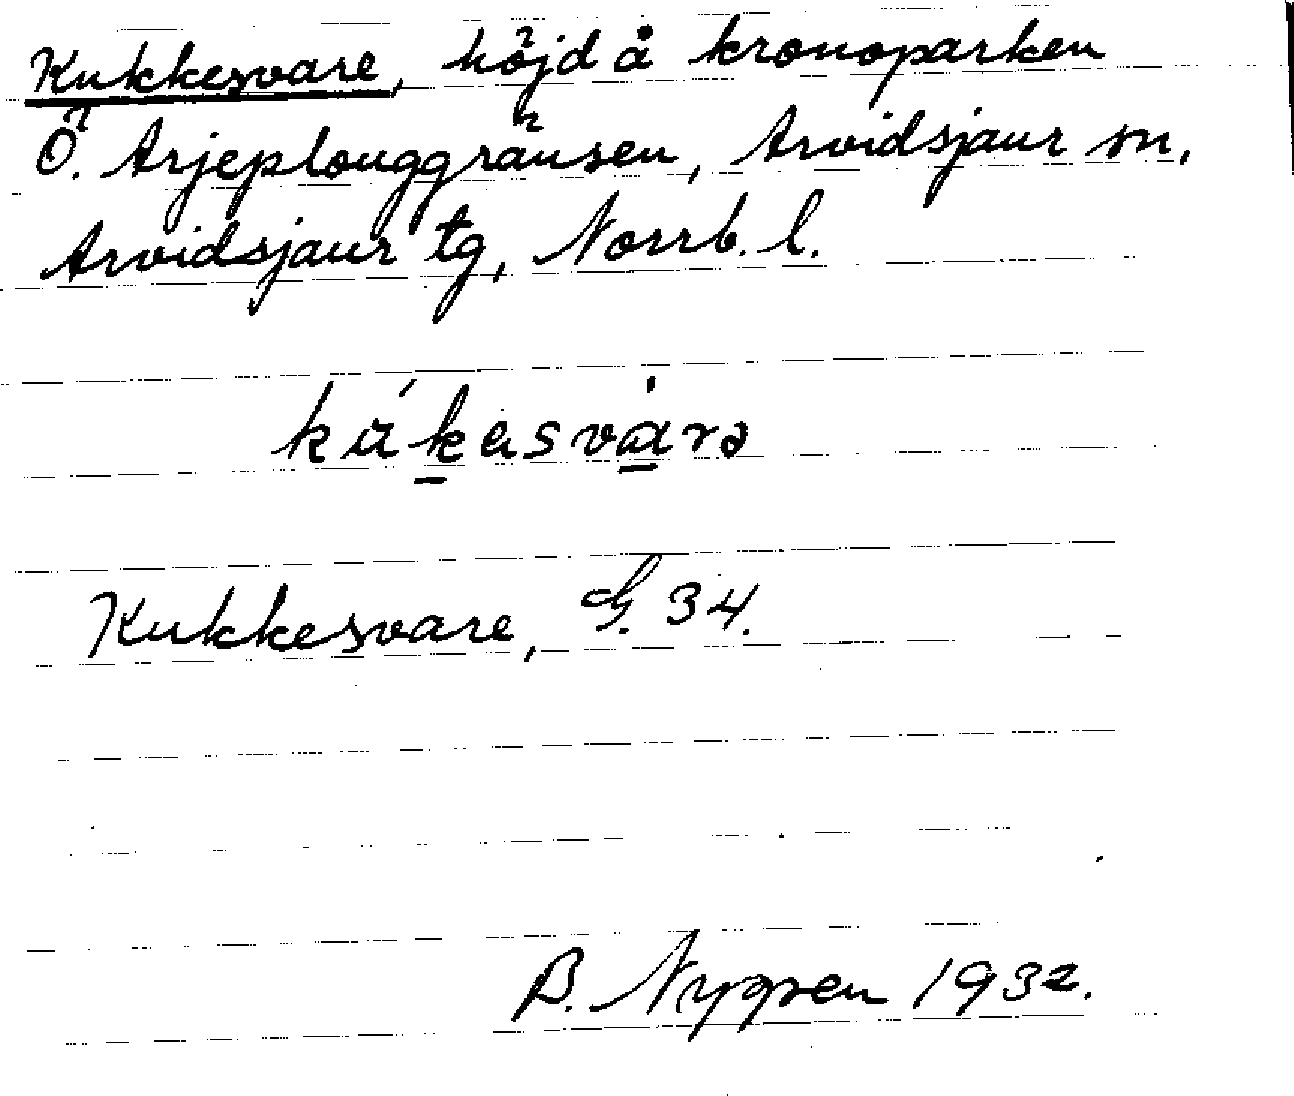 Kukkesvare, höjd å kronoparken
Ö. Arjeplouggränsen, Arvidsjaur sn,
Arvidsjaur tg, Norrb. l.
kúk̲esvȧ̲rə
Kukkesvare, G. 34.
B. Nygren 1932.